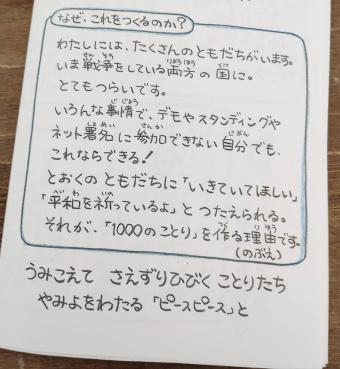 なぜ、これをつくるのか？
わたしには、たくさんのともだちがいます。
いま戦争をしている両方の国に。
とてもつらいです。
いろんな事情で、デモやスタンディングや
ネット署名に参加できない自分でも、
これならできる！
とおくの ともだちに「いきていてほしい」
「平和を祈っているよ」と つたえられる。
それが、「1000のことり」を作る理由です。
(のぶえ)
うみこえて さえずりひびく ことりたち
やみよをわたる「ピースピース」と